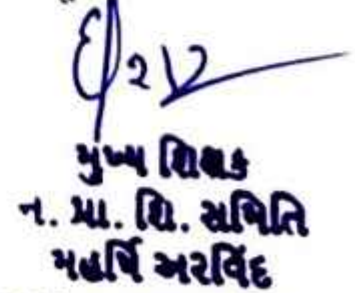 મુખ્ય શિક્ષક
ન. પ્રા. શિ. સમિતિ
મહર્ષિ અરવિંદ